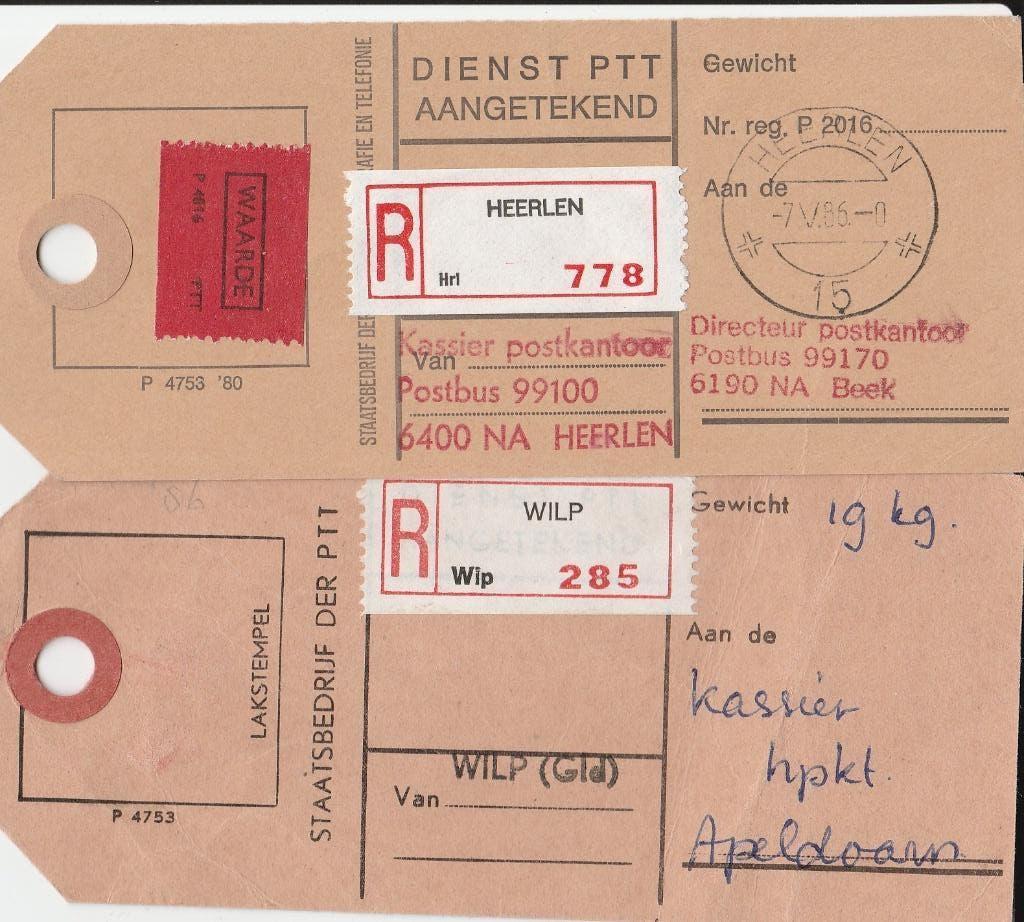 DIENST PTT
AANGETEKEND
Gewicht
Nr. reg. P 2016
Aan de
HEERLEN
-7.V.86.-0
15
WAARDE
P 4616 PTT
P 4753 '80
R
HEERLEN
Hrl 778
Van
Kassier postkantoor
Postbus 99100
6400 NA HEERLEN
Directeur postkantoor
Postbus 99170
6190 NA Beek
'86
LAKSTEMPEL
P 4753
STAATSBEDRIJF DER PTT
R
WILP
Wlp 285
WILP (Gld)
Van
Gewicht 19 kg.
Aan de
kassier
hpkt.
Apeldoorn